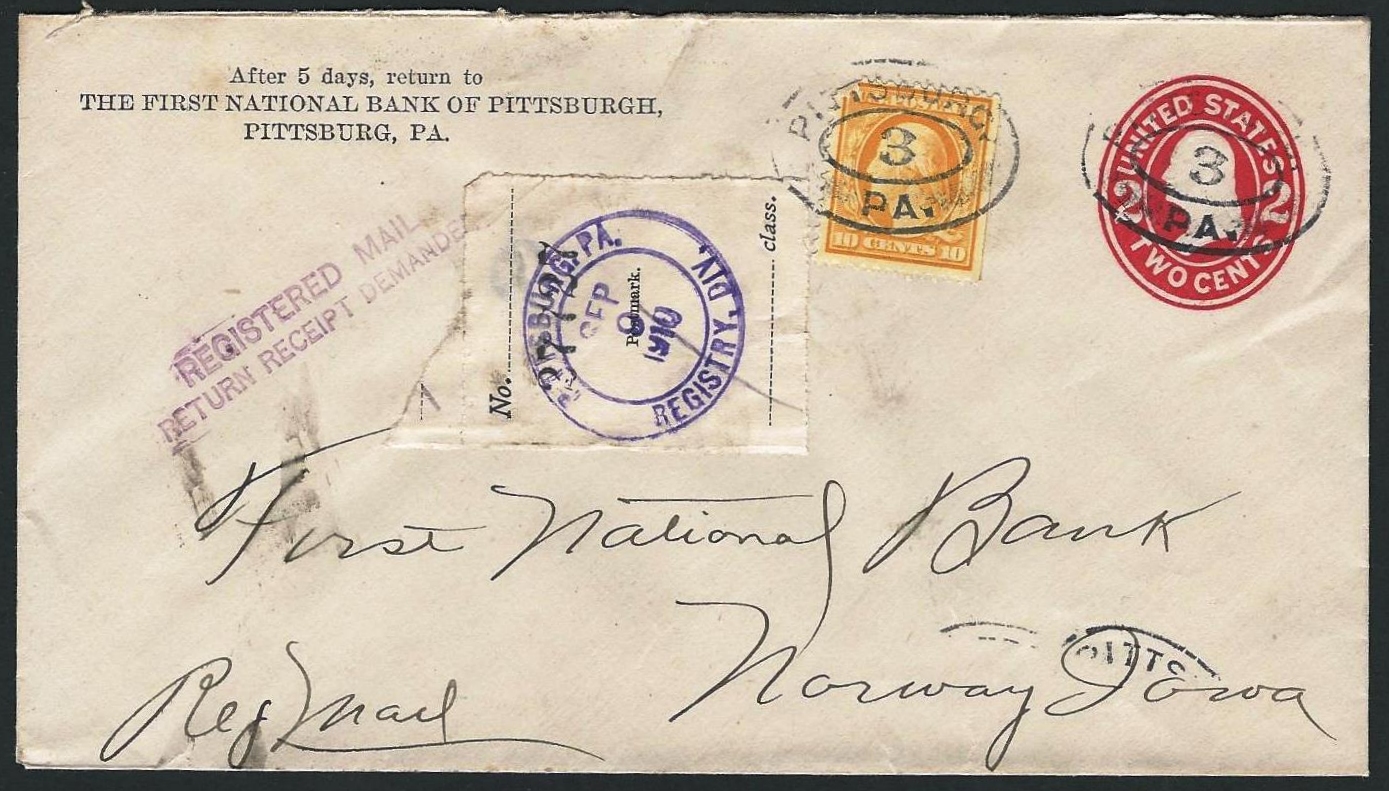 After 5 days, return to
THE FIRST NATIONAL BANK OF PITTSBURGH,
PITTSBURG, PA.
PITTSBURG,
3
PA.
10 CENTS 10
UNITED STATES
3
PA.
2 2
TWO CENTS
REGISTERED MAIL
RETURN RECEIPT DEMANDED
No.
PITTSBURG, PA.
SEP
9
1910
REGISTRY. DIV.
Postmark.
class.
First National Bank
Norway Iowa
PITTS
Reg Mail